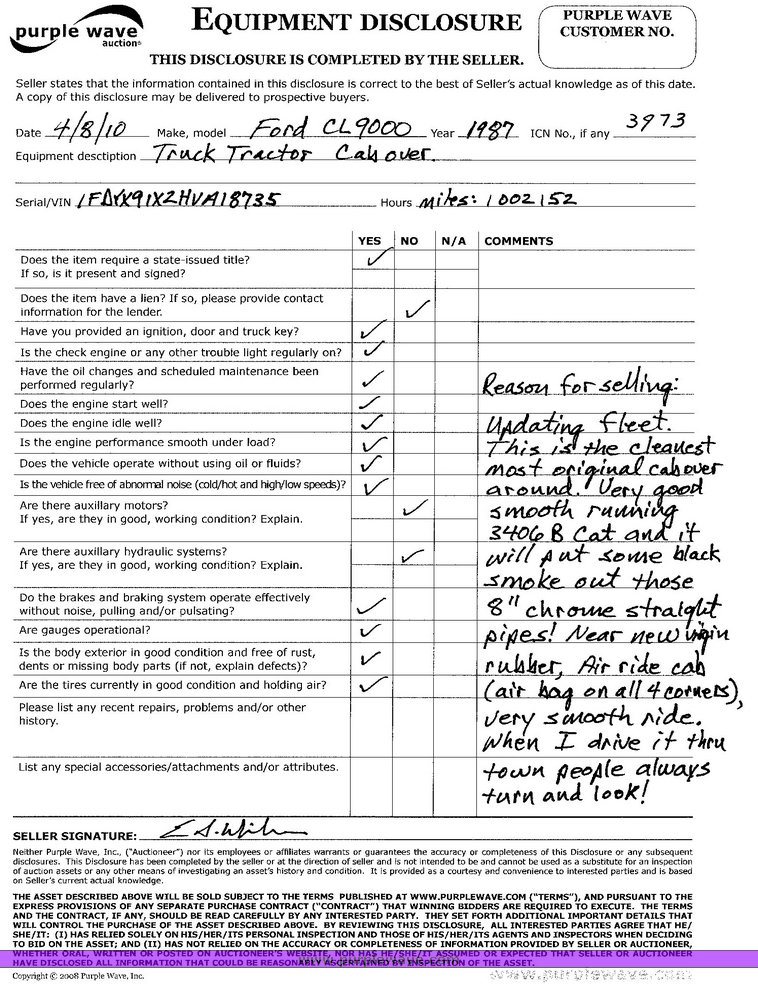 purple wave
auction
EQUIPMENT DISCLOSURE
PURPLE WAVE
CUSTOMER NO.
THIS DISCLOSURE IS COMPLETED BY THE SELLER.
Seller states that the information contained in this disclosure is correct to the best of Seller's actual knowledge as of this date.
A copy of this disclosure may be delivered to prospective buyers.
Date 4/8/10 Make, model Ford CL9000 Year 1987 ICN No., if any 3973
Equipment desctiption Truck Tractor Cabover.
Serial/VIN 1FDYX91X2HVA18735 Hours miles: 1002152
YES NO N/A COMMENTS
Does the item require a state-issued title?
If so, is it present and signed?
Does the item have a lien? If so, please provide contact
information for the lender.
Have you provided an ignition, door and truck key?
Is the check engine or any other trouble light regularly on?
Have the oil changes and scheduled maintenance been
performed regularly?
Does the engine start well?
Does the engine idle well?
Is the engine performance smooth under load?
Does the vehicle operate without using oil or fluids?
Is the vehicle free of abnormal noise (cold/hot and high/low speeds)?
Are there auxillary motors?
If yes, are they in good, working condition? Explain.
Are there auxillary hydraulic systems?
If yes, are they in good, working condition? Explain.
Do the brakes and braking system operate effectively
without noise, pulling and/or pulsating?
Are gauges operational?
Is the body exterior in good condition and free of rust,
dents or missing body parts (if not, explain defects)?
Are the tires currently in good condition and holding air?
Please list any recent repairs, problems and/or other
history.
List any special accessories/attachments and/or attributes.
Reason for selling:
Updating fleet.
This is the cleanest
most original cabover
around! Very good
smooth running
3406 B Cat and it
will put some black
smoke out those
8" chrome straight
pipes! Near new virgin
rubber, Air ride cab
(air bag on all 4 corners),
very smooth ride.
When I drive it thru
town people always
turn and look!
SELLER SIGNATURE:
Neither Purple Wave, Inc., ("Auctioneer") nor its employees or affiliates warrants or guarantees the accuracy or completeness of this Disclosure or any subsequent
disclosures. This Disclosure has been completed by the seller or at the direction of seller and is not intended to be and cannot be used as a substitute for an inspection
of auction assets or any other means of investigating an asset's history and condition. It is provided as a courtesy and convenience to interested parties and is based
on Seller's current actual knowledge.
THE ASSET DESCRIBED ABOVE WILL BE SOLD SUBJECT TO THE TERMS PUBLISHED AT WWW.PURPLEWAVE.COM ("TERMS"), AND PURSUANT TO THE
EXPRESS PROVISIONS OF ANY SEPARATE PURCHASE CONTRACT ("CONTRACT") THAT WINNING BIDDERS ARE REQUIRED TO EXECUTE. THE TERMS
AND THE CONTRACT, IF ANY, SHOULD BE READ CAREFULLY BY ANY INTERESTED PARTY. THEY SET FORTH ADDITIONAL IMPORTANT DETAILS THAT
WILL CONTROL THE PURCHASE OF THE ASSET DESCRIBED ABOVE. BY REVIEWING THIS DISCLOSURE, ALL INTERESTED PARTIES AGREE THAT HE/
SHE/IT: (I) HAS RELIED SOLELY ON HIS/HER/ITS PERSONAL INSPECTION AND THOSE OF HIS/HER/ITS AGENTS AND INSPECTORS WHEN DECIDING
TO BID ON THE ASSET; AND (II) HAS NOT RELIED ON THE ACCURACY OR COMPLETENESS OF INFORMATION PROVIDED BY SELLER OR AUCTIONEER,
WHETHER ORAL, WRITTEN OR POSTED ON AUCTIONEER'S WEBSITE, NOR HAS HE/SHE/IT ASSUMED OR EXPECTED THAT SELLER OR AUCTIONEER
HAVE DISCLOSED ALL INFORMATION THAT COULD BE REASONABLY ASCERTAINED BY INSPECTION OF THE ASSET.
Copyright © 2008 Purple Wave, Inc.
www.purplewave.com